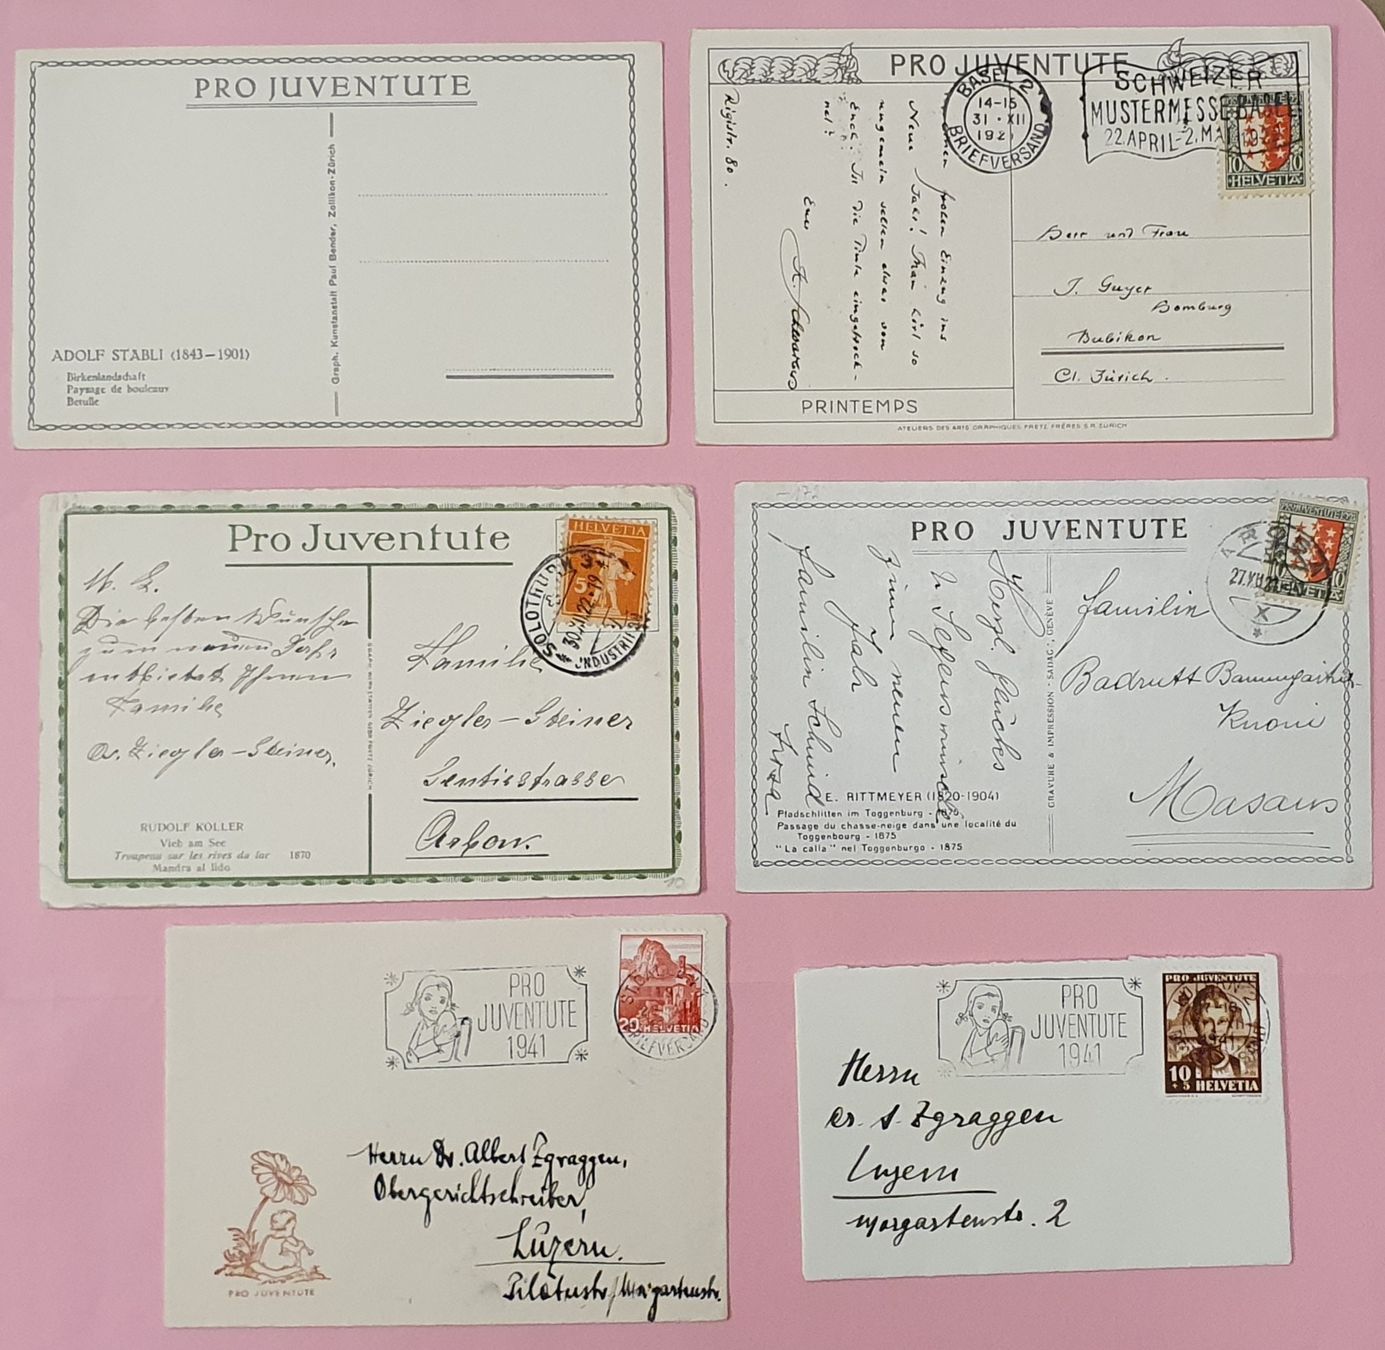 PRO JUVENTUTE
Graph. Kunstanstalt Paul Bender, Zollikon-Zürich
ADOLF STÄBLI (1843-1901)
Birkenlandschaft
Paysage de bouleaux
Betulle
PRO JUVENTUTE
BASEL 2
14-15
31·XII
1921
BRIEFVERSAND
SCHWEIZER
MUSTERMESSE BASEL
22.APRIL-2.MAI
10 10
HELVETIA
frohen Einzug ins
Neue Jahr! Man hört so
ungemein selten etwas von
Euch. Ist die Tinte eingetrock-
net?
Euer
Rigistr. 80.
Herr und Frau
J. Guyer
Homburg
Bubikon
Ct. Zürich.
PRINTEMPS
ATELIERS DES ARTS GRAPHIQUES FRETZ FRÈRES S.A. ZÜRICH
Pro Juventute
HELVETIA
5
SOLOTHURN
30.XII.22.-19
INDUSTRIE
Die besten Wünsche
zum neuen Jahr
entbietet Ihnen
Familie
Ziegler-Steiner.
Familie
Ziegler-Steiner
Sentisstrasse
Arbon.
RUDOLF KOLLER
Vieh am See
Troupeau sur les rives du lac 1870
Mandra al lido
PRO JUVENTUTE
AROSA
27.XII.22
X
HELVETIA
10
Herzl. Glückes
u Segenswünsche
zum neuen
Jahr
Familie Schmid
Familie
Badrutt
Masans
GRAVURE & IMPRESSION "SADAG", GENÈVE
E. RITTMEYER (1820-1904)
Pfadschlitten im Toggenburg - 1875
Passage du chasse-neige dans une localité du
Toggenbourg - 1875
"La calla" nel Toggenburgo - 1875
PRO
JUVENTUTE
1941
20 HELVETIA
BRIEFVERSAND
Herrn Dr. Albert Zgraggen,
Obergerichtschreiber,
Luzern.
Pilatusstr/Morgartenstr.
PRO JUVENTUTE
PRO
JUVENTUTE
1941
PRO JUVENTUTE
10
+5 HELVETIA
Herrn
Dr. A. Zgraggen
Luzern
Morgartenstr. 2